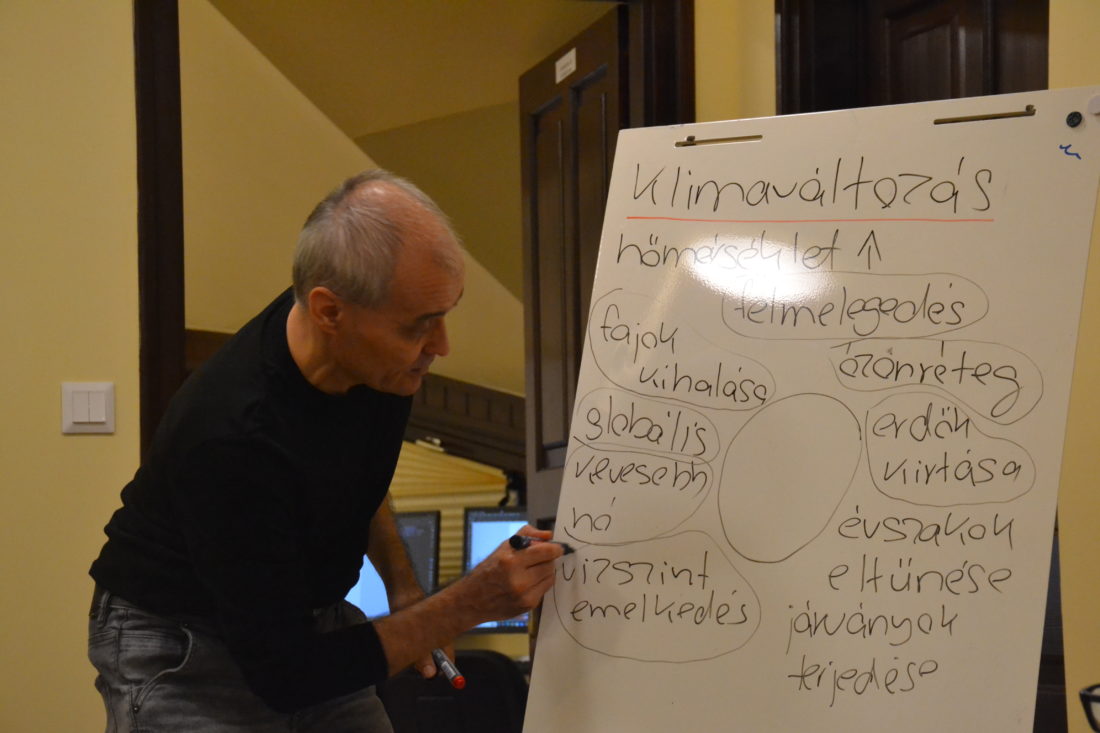 Klímaváltozás
hőmérséklet ↑
felmelegedés
fajok
kihalása
ózonréteg
globális
erdők
kiírtása
kevesebb
hó
évszakok
eltűnése
vízszint
emelkedés
járványok
terjedése